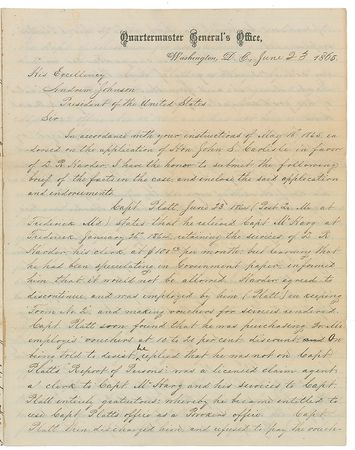 Quartermaster General's Office,
Washington, D.C., June 23d 1865.
His Excellency
Andrew Johnson
President of the United States
Sir
In accordance with your instructions of May 18 1865, en
dorsed on the application of Hon John S. Carlisle in favor
of R. Harder, I have the honor to submit the following
brief of the facts in the case, and inclose the said application
and endorsements.
Capt. Platt, June 23 1864 (Post Q. M. at
Frederick Md) states that he relieved Capt McHarg at
Frederick January 1864, retaining the services of R
Harder, his clerk at $100 per month, but learning that
he had been speculating in Government paper, informed
him that it would not be allowed. Harder agreed to
discontinue and was employed by him (Platt) on keeping
Form No 2, and making vouchers for services rendered.
Capt. Platt soon found that he was purchasing
employés' vouchers at 10 to 20 per cent discount. On
being told to desist he replied that he was not on Capt
Platts Report of Persons: was a licensed claim agent,
a clerk to Capt McHarg and his services to Capt.
Platt entirely gratuitous; whereby he became entitled to
use Capt Platts office as a Brokers office. Capt.
Platt then discharged him, and refused to pay the vouch-